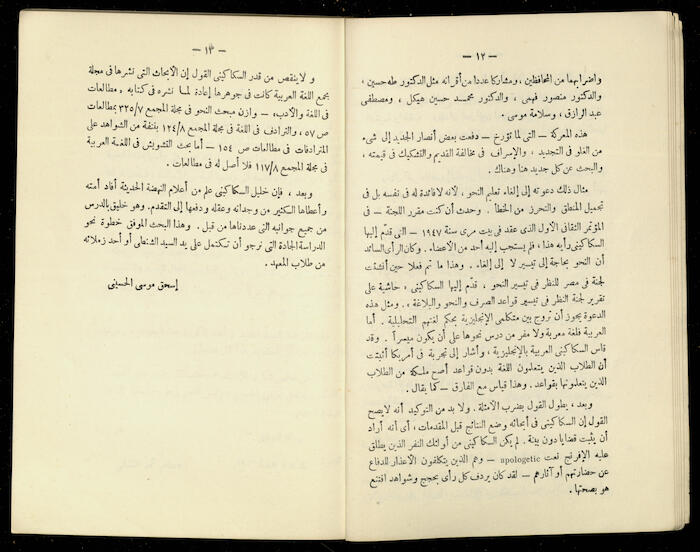 — ١٢ —
واضرابهما من المحافظين، ومشاركا عددا من أقرانه مثل الدكتور طه حسين،
والدكتور منصور فهمى، والدكتور محمد حسين هيكل، ومصطفى
عبد الرازق، وسلامة موسى.
هذه المعركة — التى لما تؤرخ — دفعت بعض أنصار الجديد إلى شىء
من الغلو فى التجديد، والإسراف فى مخالفة القديم والتشكيك فى قيمته،
والبحث عن كل جديد هنا وهناك.
مثال ذلك دعوته إلى إلغاء تعليم النحو، لأنه لا فائدة له فى نفسه بل فى
تجميل المنطق والتحرز من الخطأ. وحدث أن كنت مقرر اللجنة — فى
المؤتمر الثقافى الأول الذى عقد فى بيت مرى سنة ١٩٤٧ — التى قدم إليها
السكاكينى رأيه هذا، فلم يستجب إليه أحد من الأعضاء. وكان الرأى السائد
أن النحو بحاجة إلى تيسير لا إلى إلغاء. وهذا ما تم فعلا حين أنشئت
لجنة فى مصر للنظر فى تيسير النحو، قدم إليها السكاكينى « حاشية على
تقرير لجنة النظر فى تيسير قواعد الصرف والنحو والبلاغة ». ومثل هذه
الدعوة يجوز أن تروج بين متكلمى الإنجليزية بحكم لغتهم التحليلية. أما
العربية فلغة معربة ولا مفر من درس نحوها على أن يكون ميسراً. وقد
قاس السكاكينى العربية بالإنجليزية، وأشار إلى تجربة فى أمريكا أثبتت
أن الطلاب الذين يتعلمون اللغة بدون قواعد أصح ملكة من الطلاب
الذين يتعلمونها بقواعد. وهذا قياس مع الفارق — كما يقال.
وبعد، يطول القول بضرب الأمثلة. ولا بد من التوكيد أنه لا يصح
القول إن السكاكينى فى أبحاثه وضع النتائج قبل المقدمات، أى أنه أراد
أن يثبت قضايا دون بينة. لم يكن السكاكينى من أولئك النفر الذين يطلق
عليه الإفرنج نعت apologetic — وهم الذين يتكلفون الأعذار للدفاع
عن حضارتهم أو آثارهم — لقد كان يردف كل رأى بحجج وشواهد اقتنع
هو بصحتها.
— ١٣ —
و لا ينقص من قدر السكاكينى القول إن الأبحاث التى نشرها فى مجلة
مجمع اللغة العربية كانت فى جوهرها إعادة لما نشره فى كتابه « مطالعات
فى اللغة والأدب » — وازن مبحث النحو فى مجلة المجمع ٣٢٥/٧ بمطالعات
ص ٥٧، والترادف فى اللغة فى مجلة المجمع ١٢٤/٨ بنتفة من الشواهد على
المترادفات فى مطالعات ص ١٥٤ — أما بحث التشويش فى اللغة العربية
فى مجلة المجمع ١١٧/٨ فلا أصل له فى مطالعات.
وبعد، فإن خليل السكاكينى علم من أعلام النهضة الحديثة أفاد أمته
وأعطاها الكثير من وجدانه وعقله ودفعها إلى التقدم. وهو خليق بالدرس
من جميع جوانبه التى عددناها من قبل. وهذا البحث الموفق خطوة نحو
الدراسة الجادة التى نرجو أن تستكمل على يد السيد الشنطى أو أحد زملائه
من طلاب المعهد.
إسحق موسى الحسينى